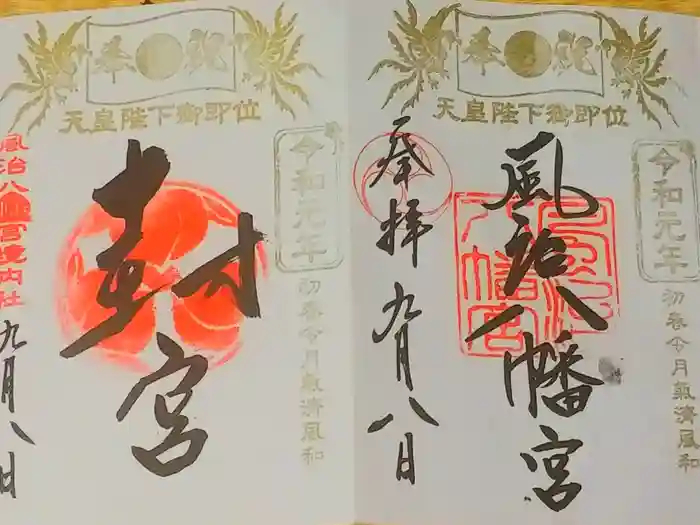 奉祝
天皇陛下御即位
令和元年
初春令月氣淑風和
奉拝
風治八幡宮
九月八日
奉祝
天皇陛下御即位
令和元年
初春令月氣淑風和
封宮
風治八幡宮境内社
九月八日